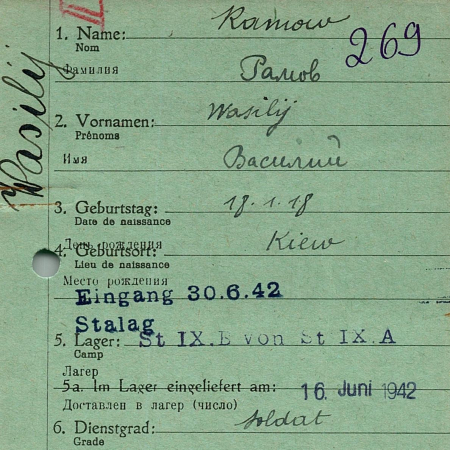 1. Name: Ramow
Nom
269
Фамилия Рамов
Wasilij
2. Vornamen: Wasilij
Prénoms
Имя Василий
3. Geburtstag: 18.1.18
Date de naissance
День рождения
4. Geburtsort: Kiew
Lieu de naissance
Место рождения
Eingang 30.6.42
Stalag
5. Lager: St IX.B von St IX.A
Camp
Лагерь
5a. Im Lager eingeliefert am: 16. Juni 1942
Доставлен в лагерь (число)
6. Dienstgrad: Soldat
Grade